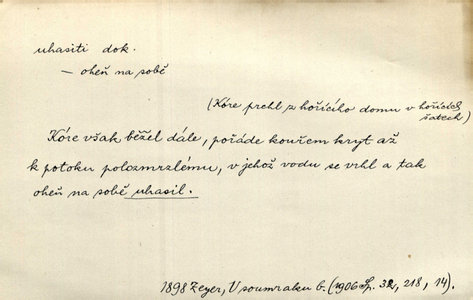 uhasiti dok.
— oheň na sobě
(Kóre prchl z hořícího domu v hořících
šatech)
Kóre však běžel dále, pořáde kouřem kryt až
k potoku polozmrzlému, v jehož vodu se vrhl a tak
oheň na sobě uhasil.
1898 Zeyer, V soumraku b. (1906 Sp. 32, 218, 14).